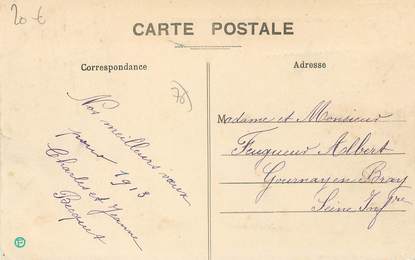 20 €
CARTE POSTALE
Correspondance
Adresse
76
Nos meilleurs vœux
pour 1913
Charles et Jeanne
Becquet
Madame et Monsieur
Feugueur Albert
Gournay en Bray
Seine Infre